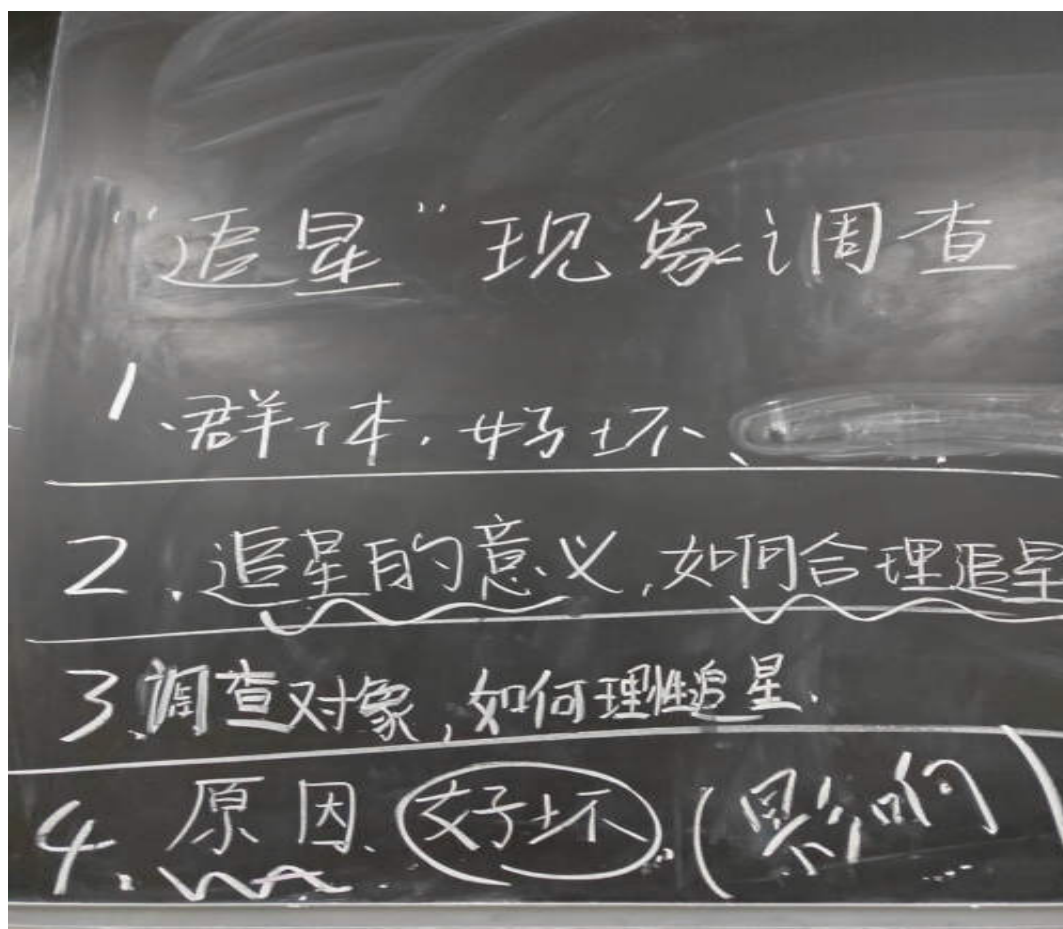 “追星”现象调查
1、群体、好坏、
2、追星的意义,如何合理追星
3、调查对象,如何理性追星.
4、原因、好坏、(影响)